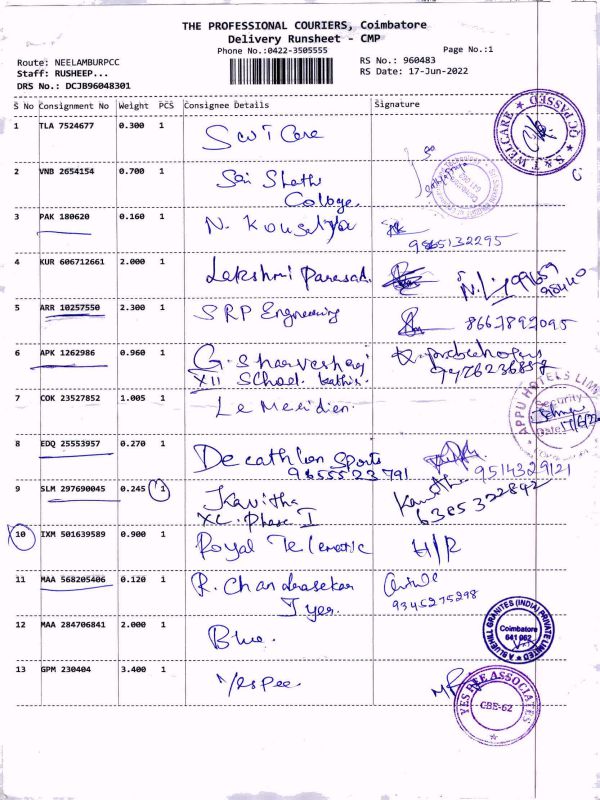 THE PROFESSIONAL COURIERS, Coimbatore
Delivery Runsheet - CMP
Phone No.:0422-3505555
Page No.:1
Route: NEELAMBURPCC
RS No.: 960483
Staff: RUSHEEP...
RS Date: 17-Jun-2022
DRS No.: DCJB96048301
S No Consignment No Weight PCS Consignee Details Signature
1 TLA 7524677 0.300 1 S&T Care
S & T WELCARE QC PASSED
2 VNB 2654154 0.700 1 Sai Shathi
College.
3 PAK 180620 0.160 1 N. Kousalya
9865132295
4 KUR 606712661 2.000 1 Lakshmi Parasad.
5 ARR 10257550 2.300 1 SRP Engineering 8667899095
6 APK 1262986 0.960 1 G. Sharveshraj
XII School 9426236858
7 COK 23527852 1.005 1 Le Meridien.
APPU HOTELS LIMI
Security
Date
8 EDQ 25553957 0.270 1 Decathlon Sports
9514329121
9 SLM 297690045 0.245 1 Kavitha
XL. Phase I 6385322842
10 IXM 501639589 0.900 1 Royal Telematic H/R
11 MAA 568205406 0.120 1 R. Chandrasekar
Iyer. 9345275298
12 MAA 284706841 2.000 1 Blue.
BLUEHILL GRANITES (INDIA) PRIVATE LIMITED
Coimbatore
641 062
13 GPM 230404 3.400 1 Yespee
YES PEE ASSOCIATES
CBE-62